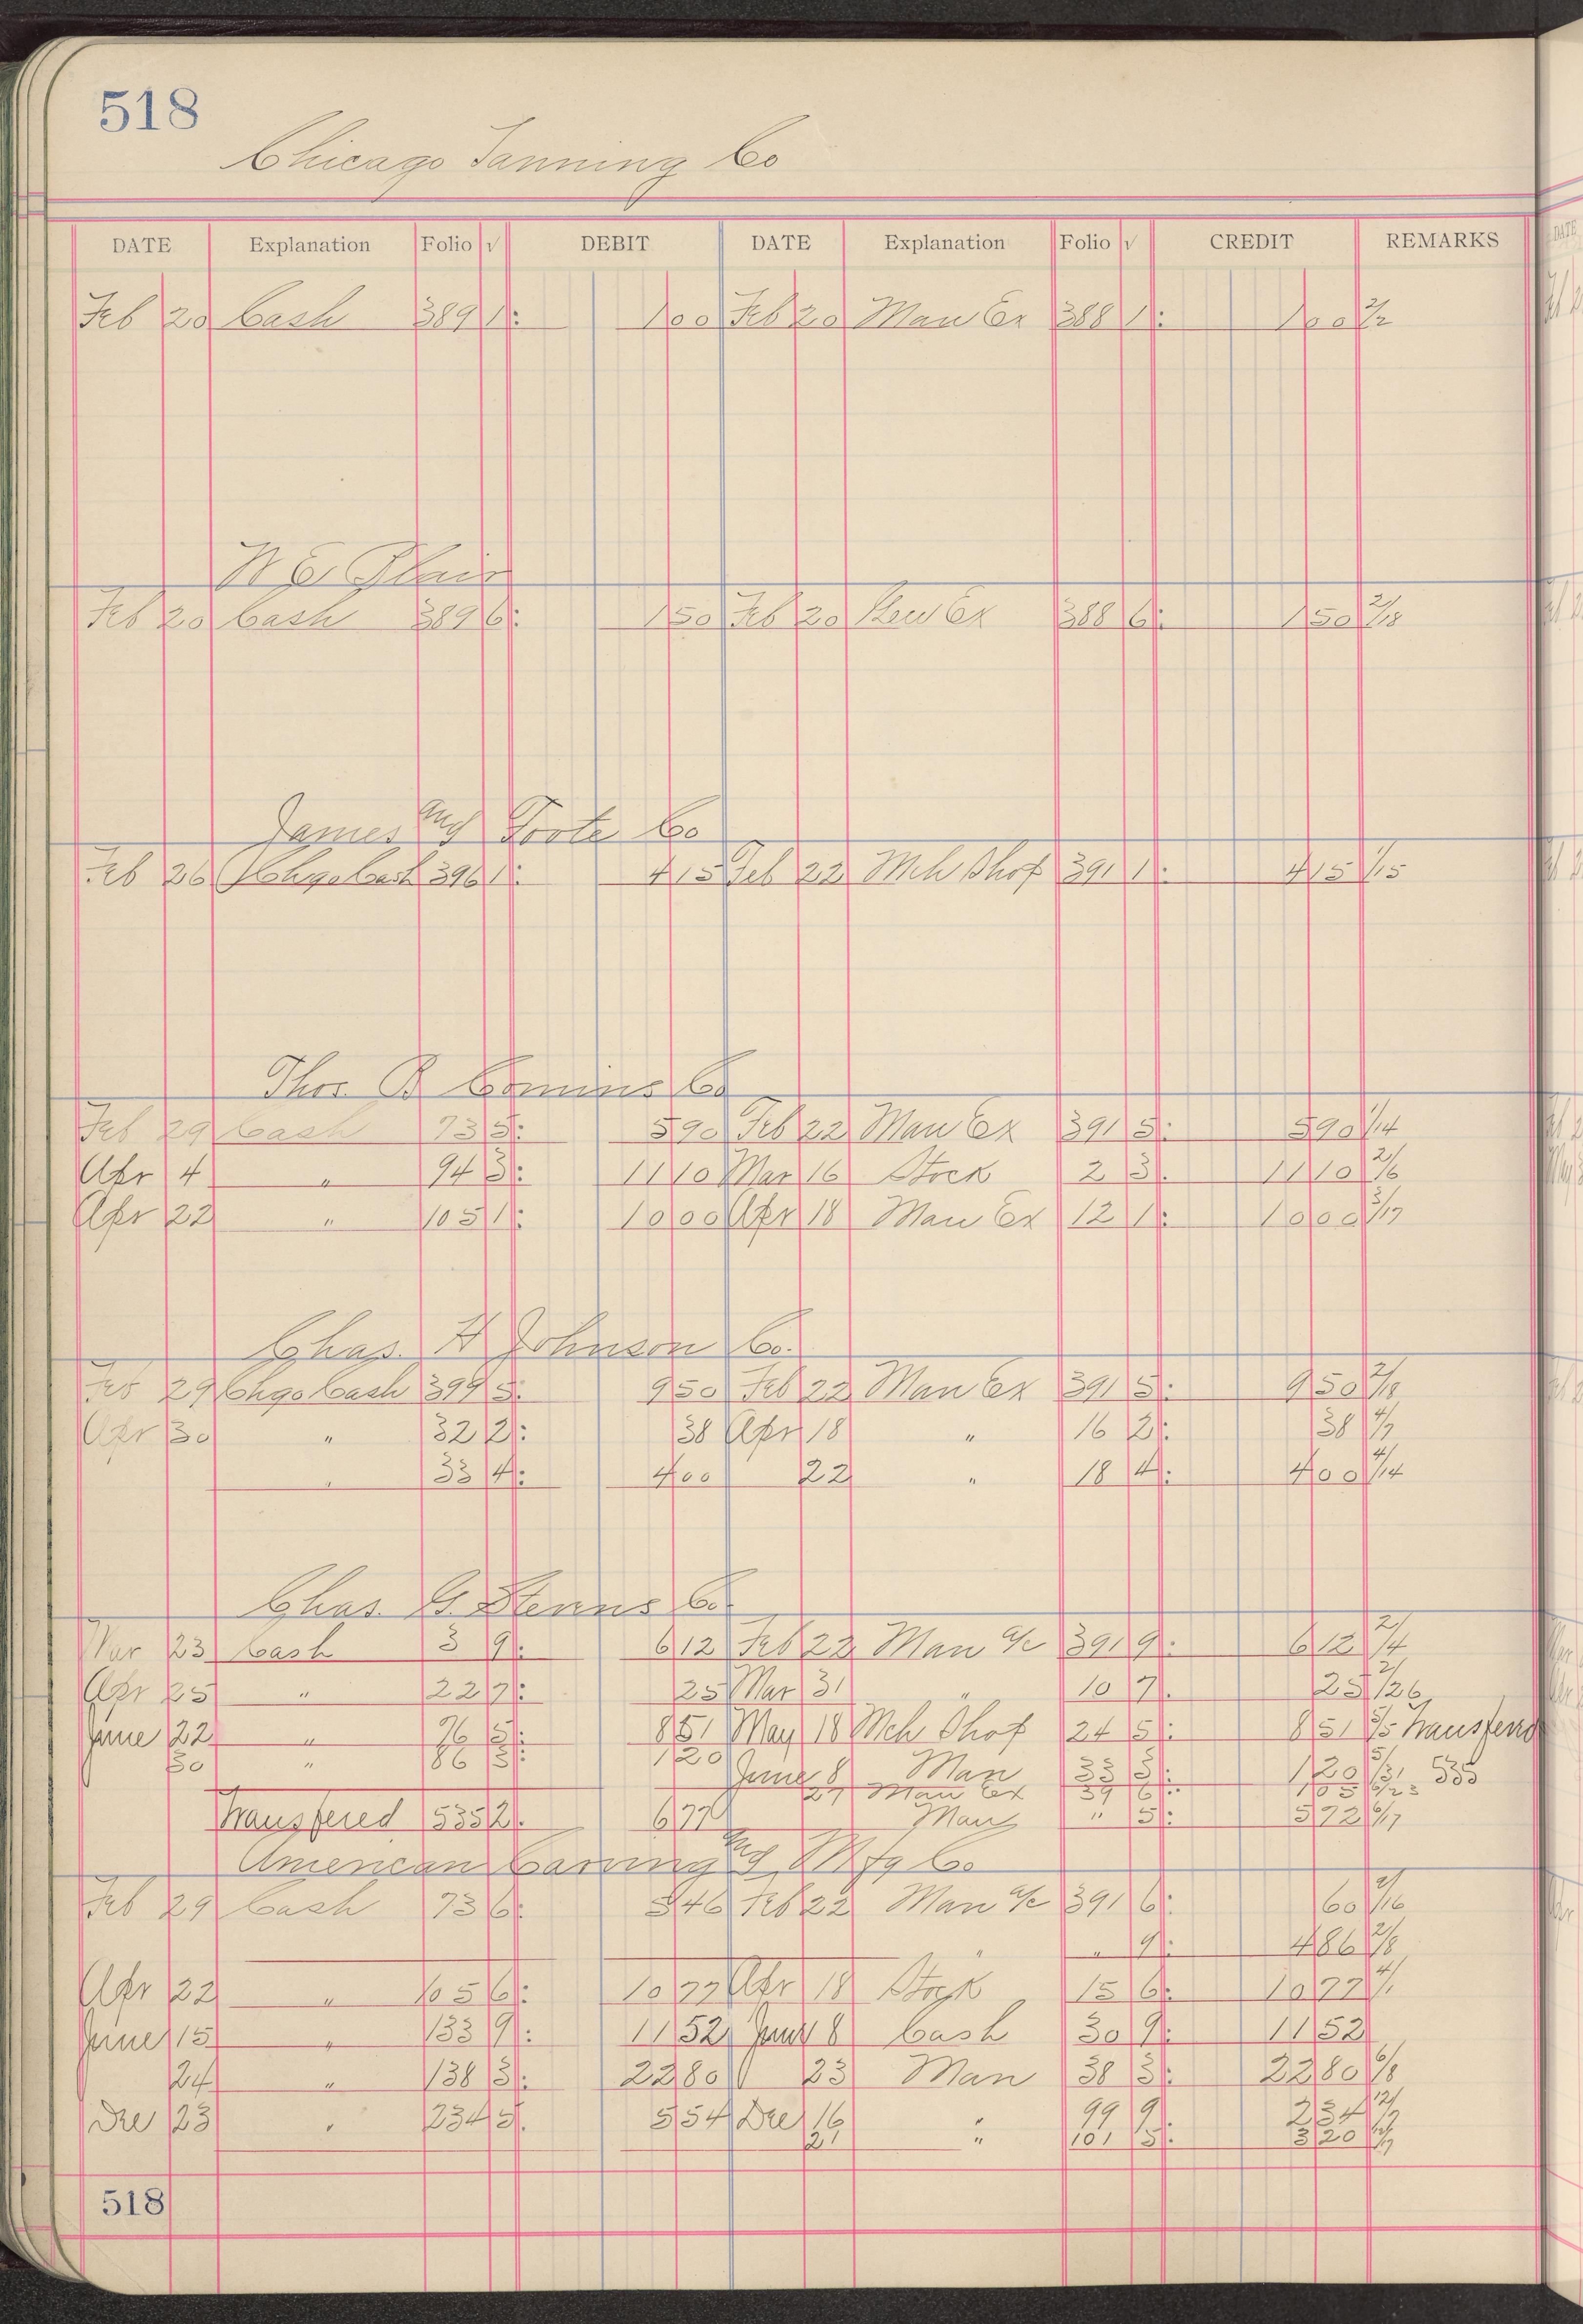 518
Chicago Tanning Co
DATE Explanation Folio √ DEBIT DATE Explanation Folio √ CREDIT REMARKS
Feb 20 Cash 389 1 100 Feb 20 Man Ex 388 1 100 2/2
W E Blair
Feb 20 Cash 389 6 150 Feb 20 Ex 388 6 150 2/18
James Mfg Foote Co
Feb 26 Chgo Cash 396 1 415 Feb 22 Mch Shop 391 1 415 1/15
Thos. B Comins Co
Feb 29 Cash 73 5 590 Feb 22 Man Ex 391 5 590 1/14
Apr 4 " 94 3 1110 Mar 16 Stock 2 3 1110 2/6
Apr 22 " 105 1 1000 Apr 18 Man Ex 12 1 1000 3/17
Chas. H Johnson Co.
Feb 29 Chgo Cash 399 5 950 Feb 22 Man Ex 391 5 950 2/18
Apr 30 " 32 2 38 Apr 18 " 16 2 38 4/7
" 33 4 400 22 " 18 4 400 4/14
Chas. G. Stevens Co.
Mar 23 Cash 3 9 612 Feb 22 Man a/c 391 9 612 2/4
Apr 25 " 22 7 25 Mar 31 " 10 7 25 2/26
June 22 " 76 5 851 May 18 Mch Shop 24 5 851 5/5 Transferred
30 " 86 3 120 June 8 Man 33 3 120 5/31 535
27 Man Ex 39 6 105 6/23
Transfered 535 2 677 Man " 5 572 6/17
American Caring Mfg Co
Feb 29 Cash 73 6 546 Feb 22 Man a/c 391 6 60 2/16
" " 9 486 2/8
Apr 22 " 105 6 1077 Apr 18 Stock 15 6 1077 4/1
June 15 " 133 9 1152 June 8 Cash 30 9 1152
24 " 138 3 2280 23 Man 38 3 2280 6/8
Dec 23 " 234 5 554 Dec 16 " 99 9 234 12/7
21 " 101 5 320
518